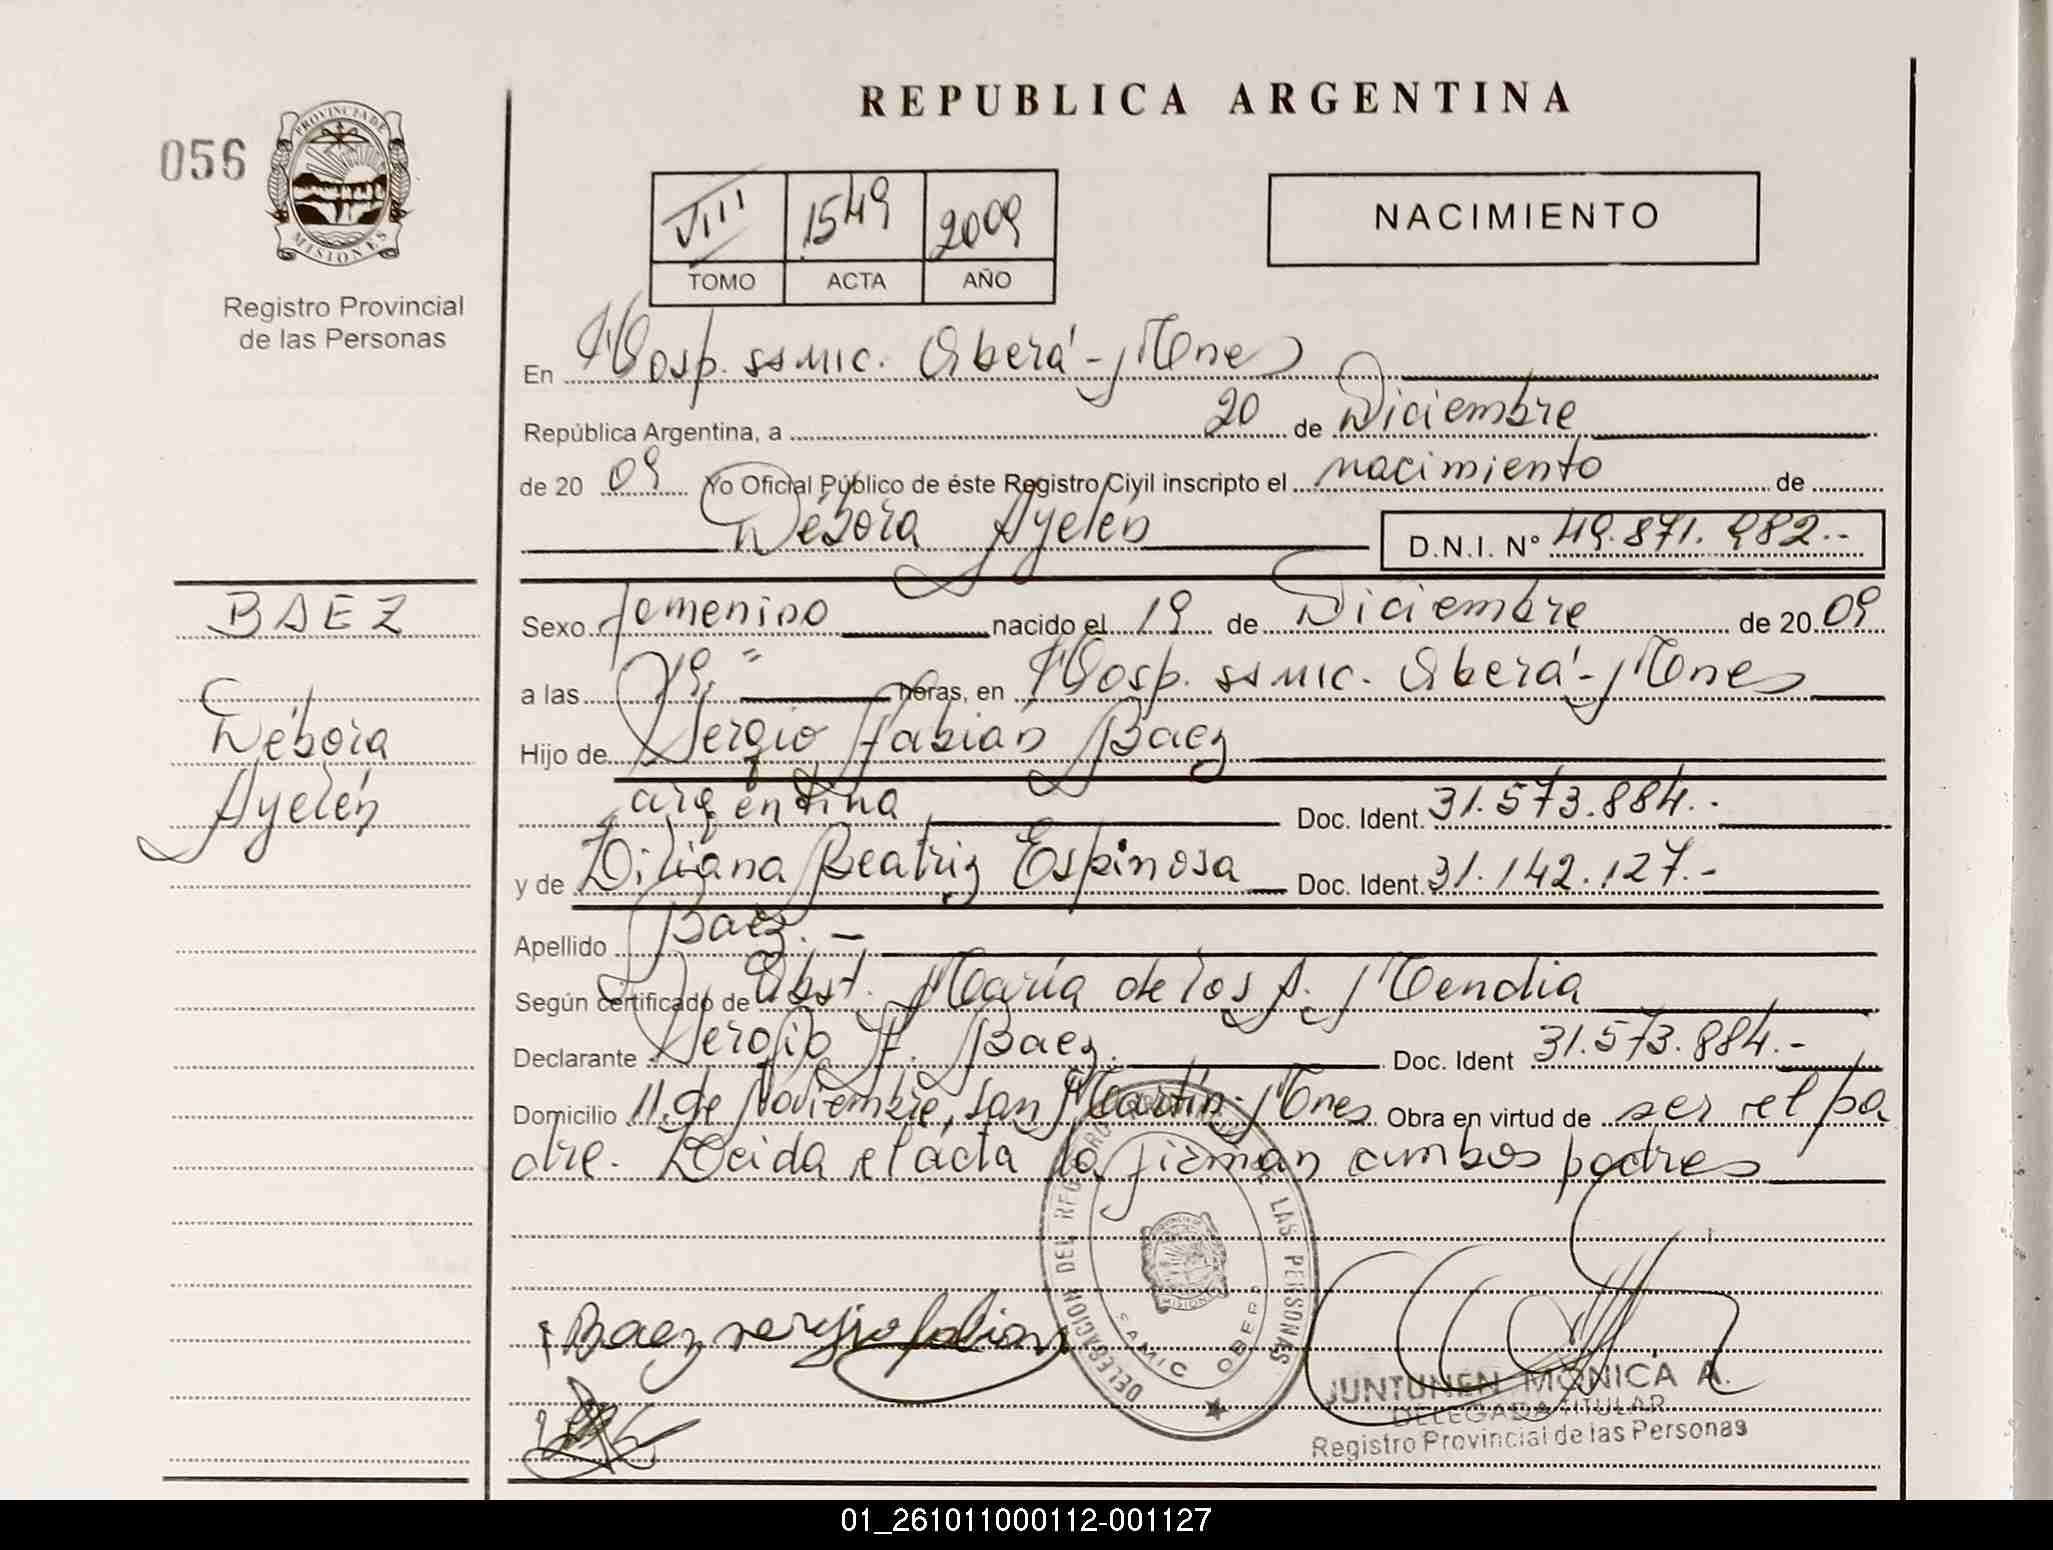 REPUBLICA ARGENTINA
056
PROVINCIA DE
MISIONES
Registro Provincial
de las Personas
VIII 1549 2009
TOMO ACTA AÑO
NACIMIENTO
En Hosp. SSMIC. Oberá-Mnes
República Argentina, a 20 de Diciembre
de 20 09 Yo Oficial Público de éste Registro Civil inscripto el nacimiento de
Débora Ayelén D.N.I. N° 49.871.982.-
BAEZ
Débora
Ayelén
Sexo femenino nacido el 19 de Diciembre de 20 09
a las 19." horas, en Hosp. SSMIC. Oberá-Mnes
Hijo de Sergio Fabián Baez
argentina Doc. Ident. 31.573.884.-
y de Liliana Beatriz Espinosa Doc. Ident. 31.142.127.-
Apellido Baez.-
Según certificado de Obst. María de los A. Mendia
Declarante Sergio F. Baez. Doc. Ident 31.573.884.-
Domicilio 11 de Noviembre, San Martín-Mnes Obra en virtud de ser el pa
dre. Leida el acta la firman ambos padres
DELEGACION DEL REGISTRO DE LAS PERSONAS
MISIONES
SAMIC OBERA
Baez sergio fabian
JUNTUNEN MONICA A.
DELEGADA TITULAR
Registro Provincial de las Personas
01_261011000112-001127